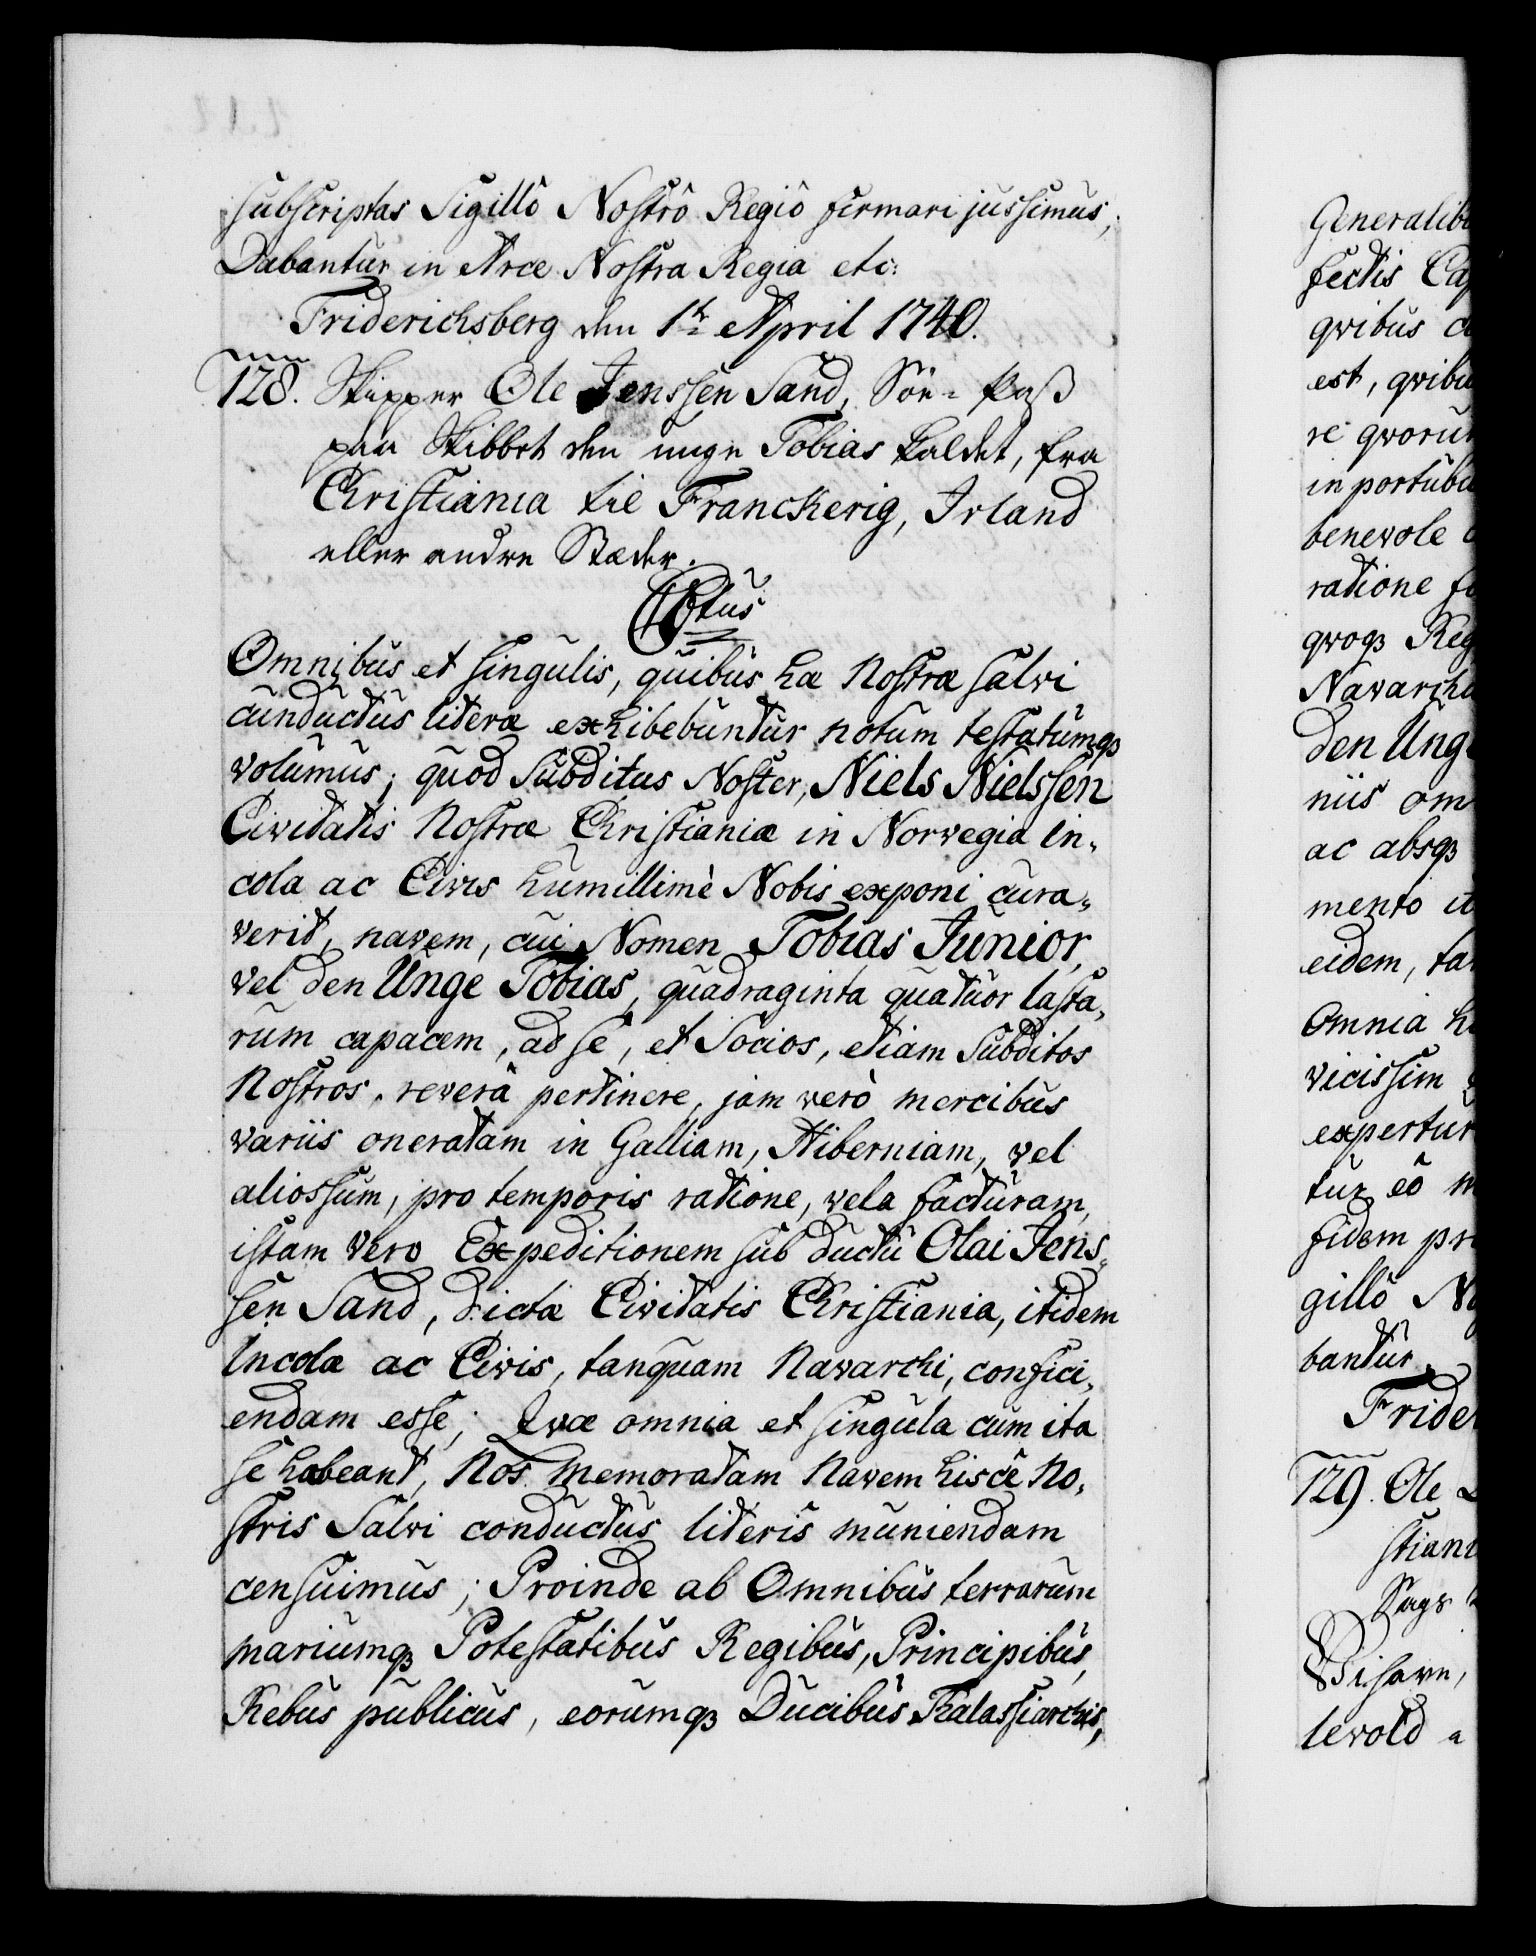 subscriptas Sigillô Nostrô Regiô firmari jussimus;
Dabantur in Arce Nostra Regia etc:
Friderichsberg den 1te April 1740.
128. Skipper Ole Jenssen Sand, Söe-Pass
paa Skibbet den unge Tobias kaldet, fra
Christiania til Franckerig, Irland
eller andre Stæder.
C6tus
Omnibus et singulis, quibus hæ Nostræ salvi
cunductus literæ exhibebuntur notum testatumqꝫ
volumus; quod Subditus Noster, Niels Nielssen
Civitatis Nostræ Christianiæ in Norvegia in-
cola ac Civis humillimè Nobis exponi cura-
verit, navem, cui Nomen Tobias Junior,
vel den Unge Tobias, quadraginta quatuor lasta-
rum capacem, ad se, et Socios, etiam Subditos
Nostros, reverâ pertinere, jam verò mercibus
variis oneratam in Galliam, Hiberniam, vel
aliossum, pro temporis ratione, vela facturam,
istam vero Expeditionem sub ductu Olai Jens-
sen Sand, dictæ Civitatis Christiania, itidem
Incolæ ac Civis, tanquam Navarchi, confici-
endam esse; Qvæ omnia et singula cum ita
se habeant, Nos memoratam Navem hisce No-
stris Salvi conductus literis muniendam
censuimus; Proinde ab Omnibus terrarum
mariumqꝫ Potestatibus Regibus, Principibus,
Rebus publicus, eorumqꝫ Ducibus Thalassiarchis,
Generalibu
fectis Cap
qvibus
est, qvibu
re qvoru
in portubu
benevole
ratione
qvoqꝫ Reg
Navarcha
den Unge
niis om
ac absqꝫ
mento it
eidem, ta
Omnia h
vicissim
expertur
tur eô
fidem pr
gillô No
bantur
Frider
129. Ole
stiani
Sags
Vi have,
levold